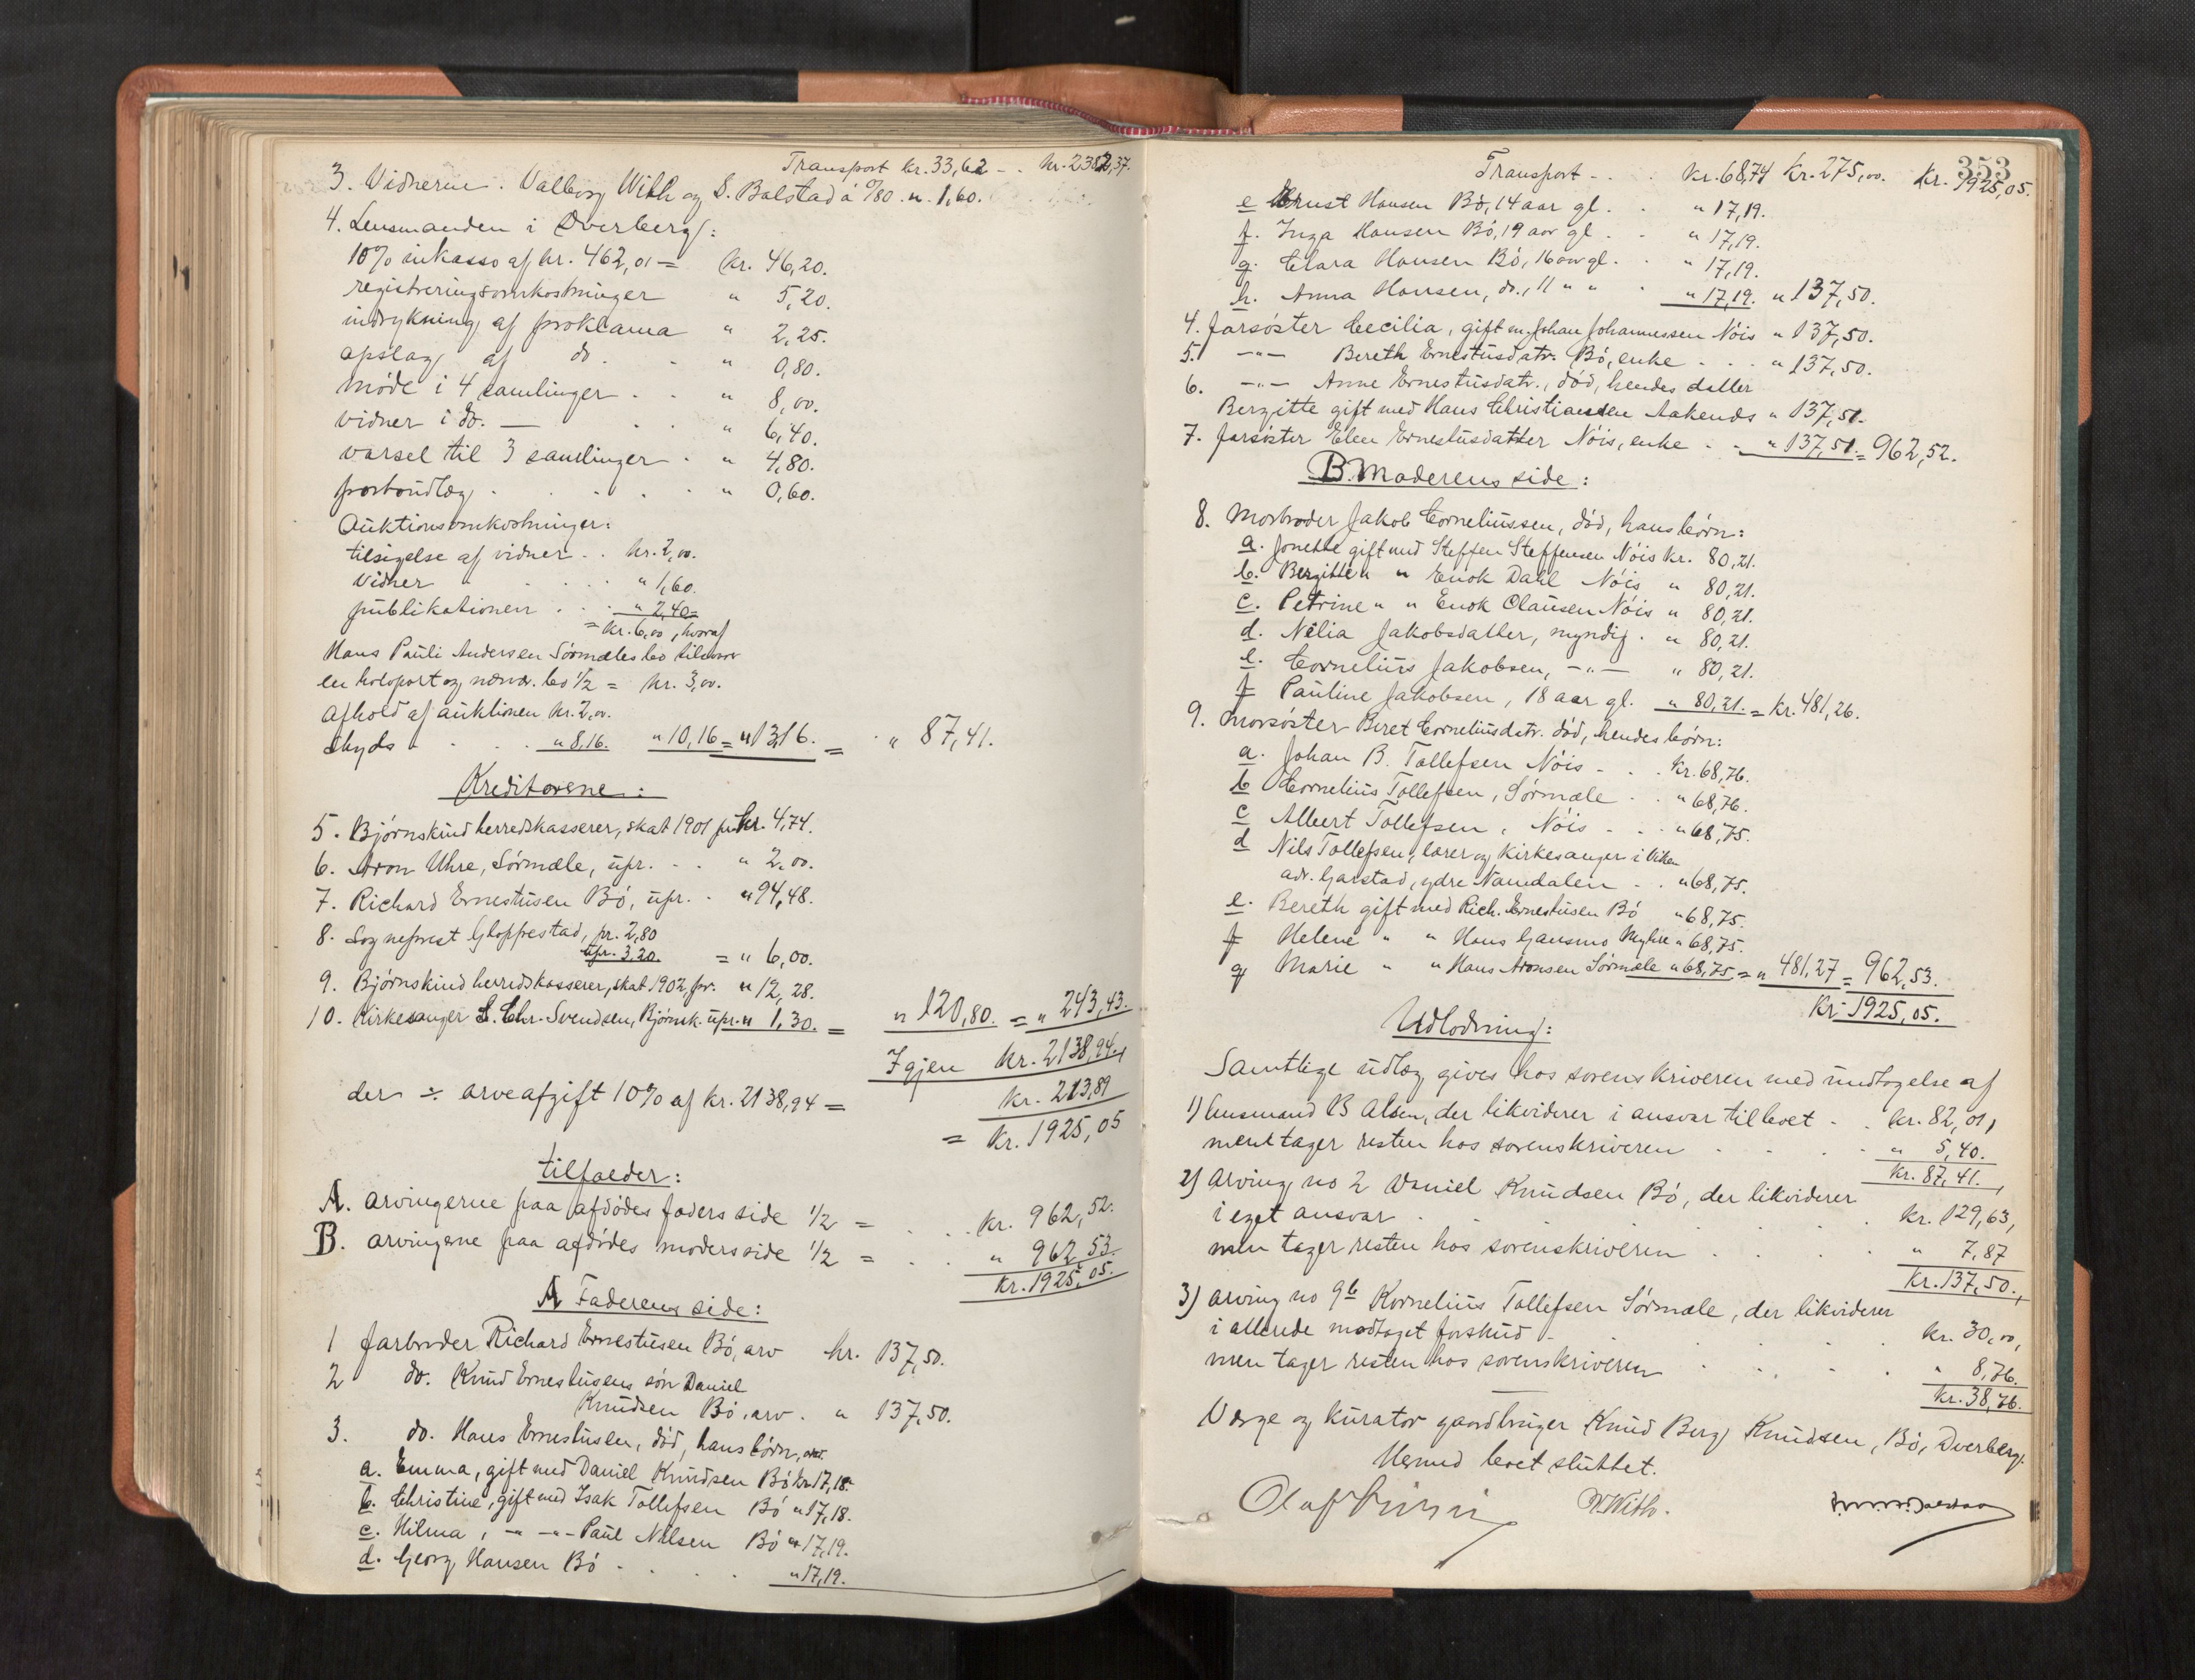 Transport kr. 33,62 - . kr. 2382,37.
3. Vidnerne. Valborg With og S. Balstad á 0/80 . " . 1,60.
4. Lensmanden i Dverberg:
10% inkasso af kr. 462,01 = kr. 46,20.
registreringsomkostninger " 5,20.
indrykning af proklama " 2,25.
opslag af do. . " 0,80.
møde i 4 samlinger . . " 8,00.
vidner i do. — . . " 6,40.
varsel til 3 samlinger . " 4,80.
portoudlæg . . . . . " 0,60.
Auktionsomkostninger:
tilsigelse af vidner . . kr. 2,00.
vidner . . . . " 1,60.
publikationen . . . " 2,40 =
= kr. 6,00, hvoraf
Hans Pauli Andersen Sørmæles bo tilsvarer
en halvpart og nærvær. bo 1/2 = kr. 3,00.
Afhold af auktionen kr. 2,00.
skyds . . . . " 8,16. " 10,16 = " 13,16. = . " 87,41.
Kreditorene:
5. Bjørnskind herredskasserer, skat 1901 pr. kr. 4,74.
6. Aron Uhre, Sørmæle, upr. . . " 2,00.
7. Richard Ernestusen Bø, upr. . " 94,48.
8. Sogneprest Gloppestad, pr. 2,80
upr. 3,20. = " 6,00.
9. Bjørnskind herredskasserer, skat 1902, pr. " 12,28.
10. Kirkesanger L. Chr. Svendsen, Bjørnsk. upr. " 1,30. = " 120,80. = " 243,43.
Igjen kr. 2138,94.,
der ÷ arveafgift 10% af kr. 2138,94 = kr. 213,89
= kr. 1925,05
tilfalder:
A. arvingerne paa afdødes faders side 1/2 = . . kr. 962,52.
B. arvingene paa afdødes moders side 1/2 = . . " 962,53.
kr. 1925,05.
A Faderens side:
1 farbroder Richard Ernestusen Bø, arv kr. 137,50.
2 do. Knud Ernestusens søn Daniel
Knudsen Bø, arv . " 137,50.
3. do. Hans Ernestusen, død, hans børn, arv.
a. Emma, gift med Daniel Knudsen Bø kr. 17,18.
b. Christine, gift med Isak Tollefsen Bø " 17,18.
c. Hilma, - " - " - Paul Nilsen Bø " 17,19.
d. Georg Hansen Bø . . . . " 17,19.
353
Transport - . . kr. 68,74 kr. 275,00. kr. 1925,05.
e Ernst Hansen Bø, 14 aar gl. . " 17,19.
f. Inga Hansen Bø, 19 aar gl . . " 17,19.
g. Clara Hansen Bø, 16 aar gl. . " 17,19.
h. Anna Hansen, do., 11 " " . " 17,19. " 137,50.
4. farsøster Cecilia, gift m. Johan Johannessen Nöis " 137,50.
5. - " - Bereth Ernestusdatr. Bø, enke . . . " 137,50.
6. - " - Anne Ernestusdatr., død, hendes datter
Bergitte gift med Hans Christiansen Aakenes " 137,51.
7. farsøster Elen Ernestusdatter Nöis, enke . . " 137,51. = 962,52.
B. Moderens side:
8. Morbroder Jakob Corneliussen, död, hans börn:
a. Jonette gift med Steffen Steffensen Nöis kr. 80,21.
b. Bergitte " " Enok Dahl Nöis " 80,21.
c. Petrine " " Enok Olausen Nöis " 80,21.
d. Nelia Jakobsdatter, myndig . " 80,21.
e. Cornelius Jakobsen, - " - " 80,21.
f Pauline Jakobsen, 18 aar gl. " 80,21. = kr. 481,26.
9. Morsöster Beret Corneliusdatr. död, hendes börn:
a. Johan B. Tollefsen Nöis - . . kr. 68,76.
b Cornelius Tollefsen, Sörmæle . . " 68,76.
c Albert Tollefsen, Nöis - . . " 68,75.
d Nils Tollefsen, lærer og kirkesanger i Viken
adr. Garstad, ydre Namdalen . . " 68,75.
e. Bereth gift med Rich. Ernestusen Bø " 68,75.
f Helene " " Hans Gausmo Myhre " 68,75.
g Marie " " Hans Aronsen Sörmæle " 68,75 = " 481,27 = 962,53.
kr. 1925,05.
Udlodning:
Samtlige udlæg gives hos sorenskriveren med undtagelse af
1) lensmand B Alsen, der likviderer i ansvar til boet . . kr. 82,01,
men tager resten hos sorenskriveren . . . . " 5,40.
kr. 87,41.,
2) Arving no 2 Daniel Knudsen Bø, der likviderer
i eget ansvar . . . . . . . kr. 129,63,
men tager resten hos sorenskriveren . . . . " 7,87
kr. 137,50.,
3) arving no 9b Kornelius Tollefsen Sörmæle, der likviderer
i allerede modtaget forskud - . . . . kr. 30,00,
men tager resten hos sorenskriveren . . . . " 8,76.
kr. 38,76.
Værge og kurator gaardbruger Knud Berg Knudsen, Bø, Dverberg.
Hermed boet sluttet.
V. With.